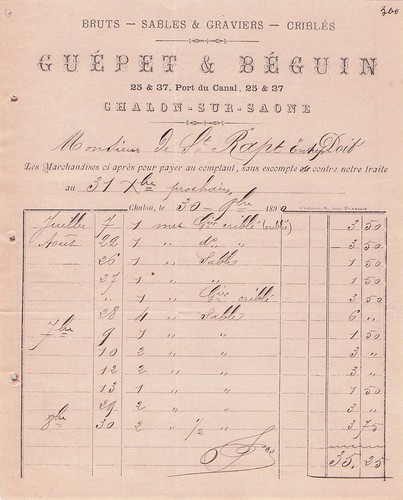 200
BRUTS — SABLES & GRAVIERS — CRIBLÉS
GUÉPET & BÉGUIN
25 & 37, Port du Canal, 25 & 37
CHALON-SUR-SAONE
Monsieur De St Rapt Doit
Les Marchandises ci après pour payer au comptant, sans escompte ou contre notre traite
au 31 Xbre prochain
Chalon, le 30 9bre 1890
Juillet 7 1 mes Gier criblé (oublié) 3 50
Août 22 1 " do " 3 50
26 1 " Sable 1 50
27 1 " " 1 50
" 1 " Gier criblé 3 50
28 4 " Sable 6 "
7bre 9 1 " " 1 50
10 2 " " 3 "
12 2 " " 3 "
13 1 " " 1 50
29 2 " " 3 "
8bre 30 2 " 1/2 " 3 75
35. 25